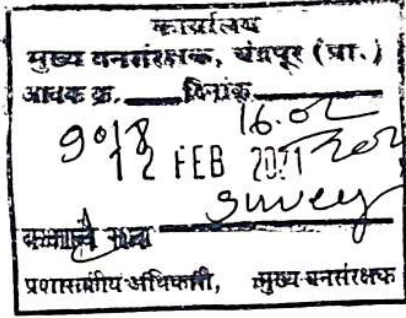 कार्यालय
मुख्य वनसंरक्षक, चंद्रपूर (प्रा.)
आवक क्र. दिनांक
16.02
12 FEB 2021
survey
प्रशासकीय अधिकारी, मुख्य वनसंरक्षक